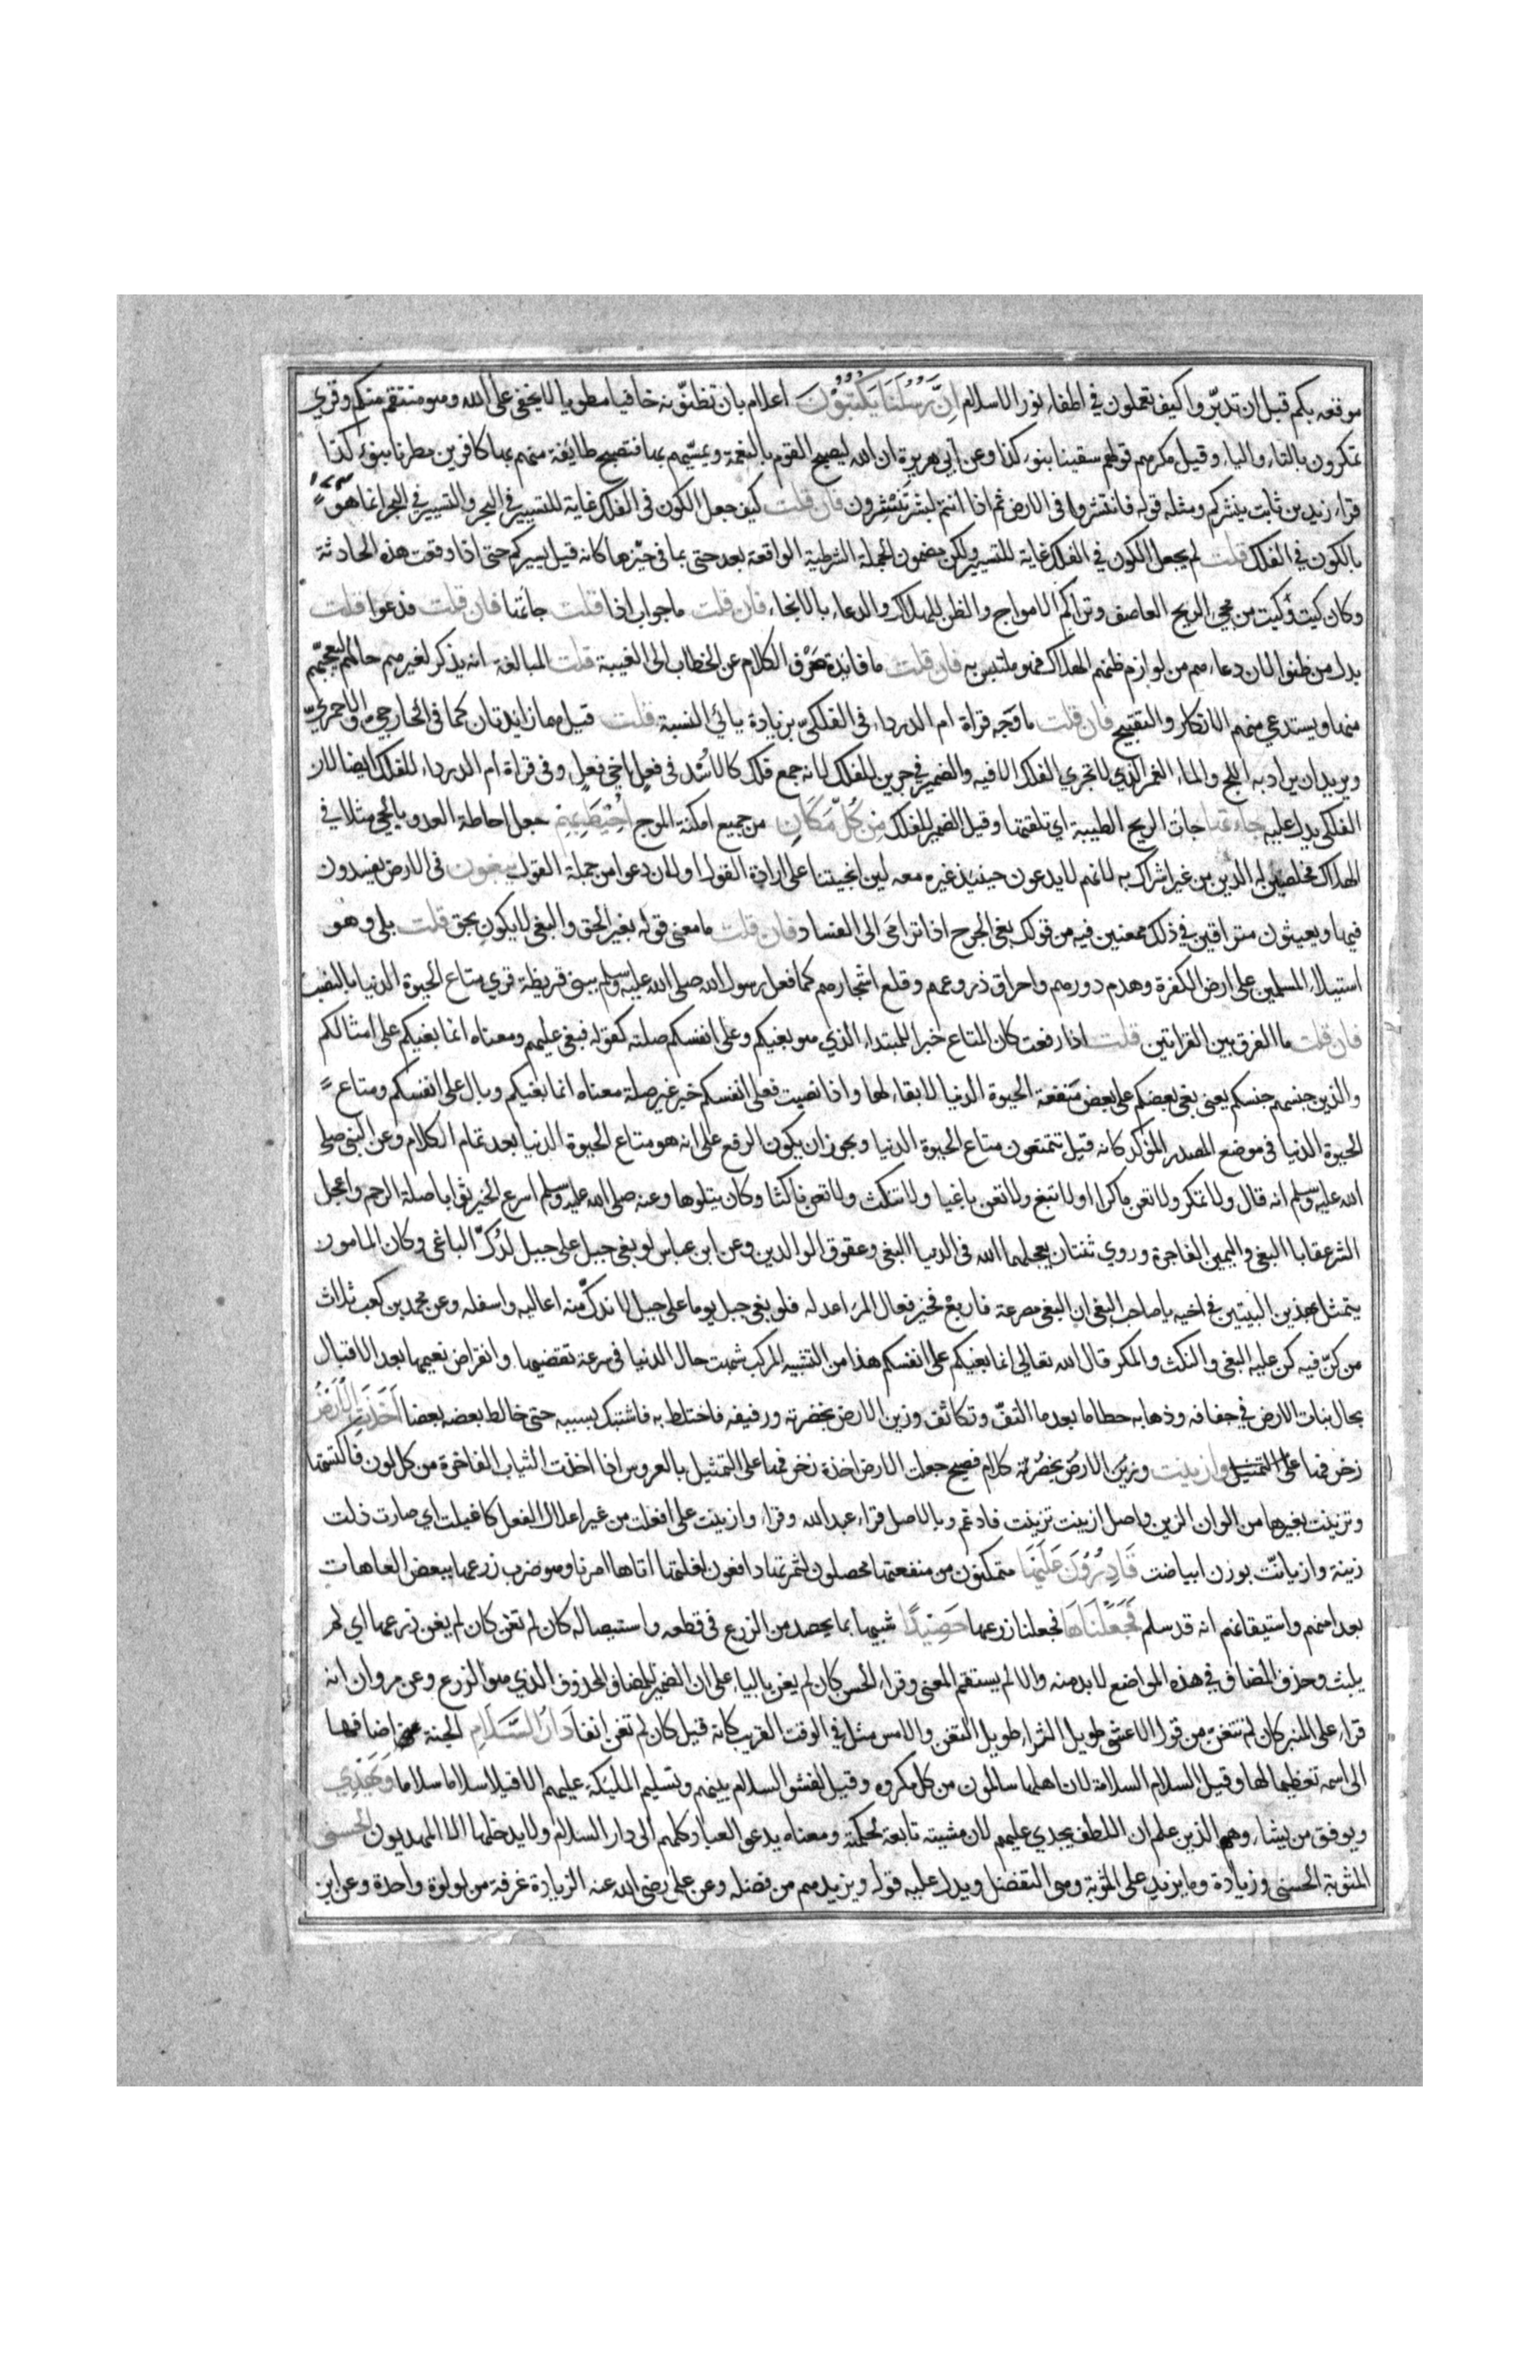 موقعه بكم قبل ان تدبروا كيف تعملون في اطفاء نور الاسلام اِنَّ رُسُلَنَا يَكْتُبُوْنَ اعلام بان تظنونه خافيا مطويا لا يخفى على الله وهو منتقم منكم وقرى
تمكرون بالتاء والياء وقيل مكرهم قولهم سقينا بنوء كذا وعن ابي هريرة ان الله ليصبح القوم بالنعمة ويمسيهم بها فتصبح طايفة منهم بها كافرين مطرنا بنوء كذا
قراء زيد بن ثابت ينشركم ومثله قوله فانتشروا في الارض ثم اذا انتم بشر تنتشرون فان قلت كيف جعل الكون في الفلك غاية للتسيير في البحر والتسيير في البحر انما هو
بالكون في الفلك قلت لم يجعل الكون في الفلك غاية للتسيير ولكن مضمون الجملة الشرطية الواقعة بعد حتى بما في حيزها كانه قيل يسيركم حتى اذا وقعت هذه الحادثة
وكان كيت وكيت من مجيء الريح العاصف وتراكم الامواج والظن للهلاك والدعاء بالانجاء فان قلت ما جواب اذا قلت جائتها فان قلت فدعوا قلت
بدل من ظنوا لان دعاءهم من لوازم ظنهم الهلاك فهو ملتبس به فان قلت ما فايدة صرف الكلام عن الخطاب الى الغيبة قلت المبالغة انه يذكر لغيرهم حالهم ليعجبهم
منها ويستدعي منهم الانكار والتقبيح فان قلت ما وجه قراة ام الدرداء في الفلكي بزيادة يائي النسبة قلت قيل هما زايدتان كما في الخارجي والاحمري
ويريد ان يراد به اللج والماء الغمر الذي لا تجري الفلك الا فيه والضمير في جرين للفلك لانه جمع فلك كالاسد في فعل اخي فعل وفي قراة ام الدرداء للفلك ايضا لان
الفلكي يدل عليه جاءتها جات الريح الطيبة اي تلقتها وقيل الضمير للفلك مِنْ كُلِّ مَكَانٍ من جميع امكنة الموج اُحِيْطَ بِهِمْ جعل احاطة العدو بالحي مثلا في
الهلاك مخلصين له الدين من غير اشراك به لانهم لا يدعون حينيذ غيره معه لين انجيتنا على ارادة القول او لان دعوا من جملة القول يبغون في الارض يفسدون
فيها ويعيثون متراقين في ذلك ممعنين فيه من قولك بغى الجرح اذا ترامى الى الفساد فان قلت ما معنى قوله بغير الحق والبغي لا يكون بحق قلت بلى وهو
استيلاء المسلمين على ارض الكفرة وهدم دورهم واحراق ذروعهم وقلع اشجارهم كما فعل رسول الله صلى الله عليه وسلم ببني قريظة قرى متاع الحيوة الدنيا بالنصب
فان قلت ما الفرق بين القراتين قلت اذا رفعت كان المتاع خبرا للمبتداء الذي هو بغيكم وعلى انفسكم صلته كقوله فبغى عليهم ومعناه انما بغيكم على امثالكم
والذين جنسهم جنسكم يعني بغي بعضكم على بعض منفعة الحيوة الدنيا لا بقاء لها واذا نصبت فعلى انفسكم خبر غير صلة معناه انما بغيكم وبال على انفسكم ومتاع
الحيوة الدنيا في موضع المصدر المؤكد كانه قيل تتمتعون متاع الحيوة الدنيا ويجوز ان يكون الرفع على انه هو متاع الحيوة الدنيا بعد تمام الكلام وعن النبي صلى
الله عليه وسلم انه قال ولا تمكر ولا تعن ماكرا ولا تبغ ولا تعن باغيا ولا تنكث ولا تعن ناكثا وكان يتلوها وعنه صلى الله عليه وسلم اسرع الخير ثوابا صلة الرحم واعجل
الشر عقابا البغي واليمين الفاجرة وروي ثنتان يعجلهما الله في الدنيا البغي وعقوق الوالدين وعن ابن عباس لو بغى جبل على جبل لدك الباغي وكان المامون
يتمثل بهذين البيتين في اخيه يا صاحب البغي ان البغي مصرعة فاربع فخير فعال المرء اعدله فلو بغى جبل يوما على جبل لاندك منه اعاليه واسفله وعن محمد بن كعب ثلاث
من كن فيه كن عليه البغي والنكث والمكر قال الله تعالى انما بغيكم على انفسكم هذا من التشبيه المركب شبهت حال الدنيا في سرعة تقضيها وانقراض نعيمها بعد الاقبال
بحال نبات الارض في جفافه وذهابه حطاما بعد ما التف وتكاثف وزين الارض بخضرته ورفيفه فاختلط به فاشتبك بسببه حتى خالط بعضه بعضا اَخَذَتِ الْاَرْضُ
زخرفها على التمثيل وازينت وزين الارض بخضرته كلام فصيح جعلت الارض اخذة زخرفها على التمثيل بالعروس اذا اخذت الثياب الفاخرة من كل لون فاكتستها
وتزينت بغيرها من الوان الزين واصل ازينت تزينت فادغم وبالاصل قراء عبد الله وقراء وازينت على افعلت من غير اعلال الفعل كاغيلت اي صارت ذات
زينة وازيانت بوزن ابياضت قَادِرُوْنَ عَلَيْهَا متمكنون من منفعتها محصلون لثمرتها دافعون لغلتها اتاها امرنا وهو ضرب زرعها ببعض العاهات
بعد امنهم واستيقانهم انه قد سلم فَجَعَلْنَاهَا فجعلنا زرعها حَصِيْدًا شبيها بما يحصد من الزرع في قطعه واستيصاله كان لم تغن كان لم يغن زرعها اي لم
يلبث وحذف المضاف في هذه المواضع لا بد منه والا لم يستقم المعنى وقراء الحسن كان لم يغن بالياء على ان الضمير للمضاف المحذوف الذي هو الزرع وعن مروان انه
قراء على المنبر كان لم تتغن من قول الاعشى طويل الثواء طويل التغن والامس مثل في الوقت القريب كانه قيل كان لم تغن انفا دَارُ السَّلَامِ الجنة اضافها
الى اسمه تعظيما لها وقيل السلام السلامة لان اهلها سالمون من كل مكروه وقيل لفشو السلام بينهم وتسليم المليكة عليهم الا قيلا سلاما سلاما وَيَهْدِي
ويوفق من يشاء وهم الذين علم ان اللطف يجدي عليهم لان مشيته تابعة لحكمته ومعناه يدعو العباد كلهم الى دار السلام ولا يدخلها الا المهديون الحسنى
المثوبة الحسنى وزيادة وما يزيد على المثوبة وهي التفضل ويدل عليه قوله ويزيدهم من فضله وعن علي رضي الله عنه الزيادة غرفة من لولوة واحدة وعن ابن